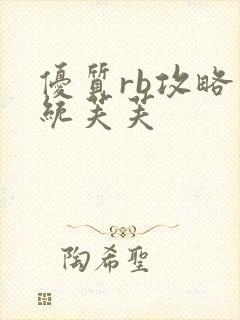 優質rb攻略
統芙芙
陶希聖